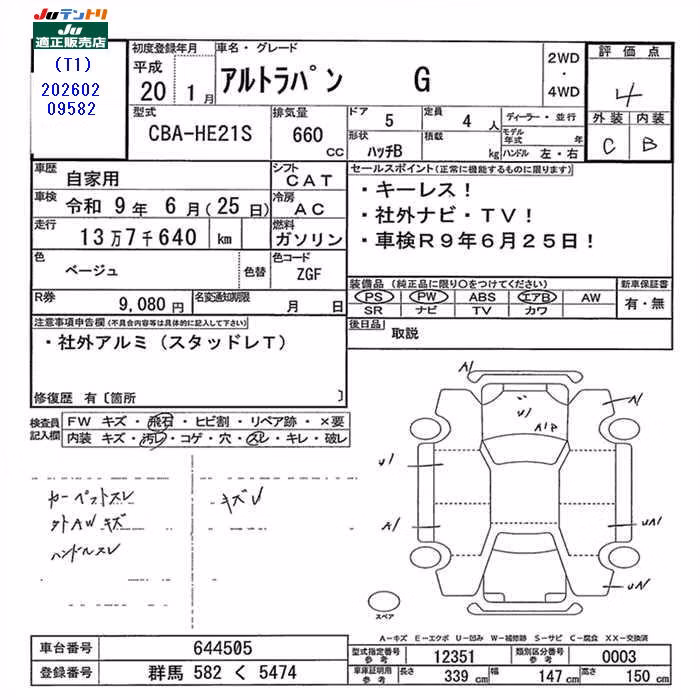 Juテントリ
Ju
適正販売店
(T1)
202602
09582
初度登録年月
平成
20 1月
車名・グレード
アルトラパン G
2WD
・
4WD
評価点
4
外装 内装
C B
型式
CBA-HE21S
排気量
660
CC
ドア 5
定員 4 人
ディーラー・並行
形状 ハッチB
積載 kg
モデル年式 年
ハンドル 左・右
車歴
自家用
シフト
CAT
車検 令和 9年 6月(25日)
冷房
AC
走行
13万7千640 km
燃料
ガソリン
色
ベージュ
色替
色コード
ZGF
R券
9,080円
名変通知期限
月 日
セールスポイント(正常に機能するものに限ります)
・キーレス!
・社外ナビ・TV!
・車検R9年6月25日!
装備品(純正品に限り○をつけてください)
新車保証書
PS PW ABS エアB AW
SR ナビ TV カワ
有・無
後日品
取説
注意事項申告欄(不具合内容等は具体的に記入して下さい)
・社外アルミ(スタッドレT)
修復歴 有〔箇所 〕
検査員
記入欄
FW キズ・飛石・ヒビ割・リペア跡・×要
内装 キズ・汚レ・コゲ・穴・スレ・キレ・破レ
カーペットスレ
外AWキズ
ハンドルスレ
キズU
A1
A1
U1
A1P
U1
A1
UA1
UA1
スペア
A-キズ E-エクボ U-凹み W-補修跡 S-サビ C-腐食 XX-交換済
車台番号
644505
登録番号
群馬 582 く 5474
型式指定番号
参考
12351
類別区分番号
参考
0003
車庫証明用
参考
長さ 339 cm
幅 147 cm
高さ 150 cm